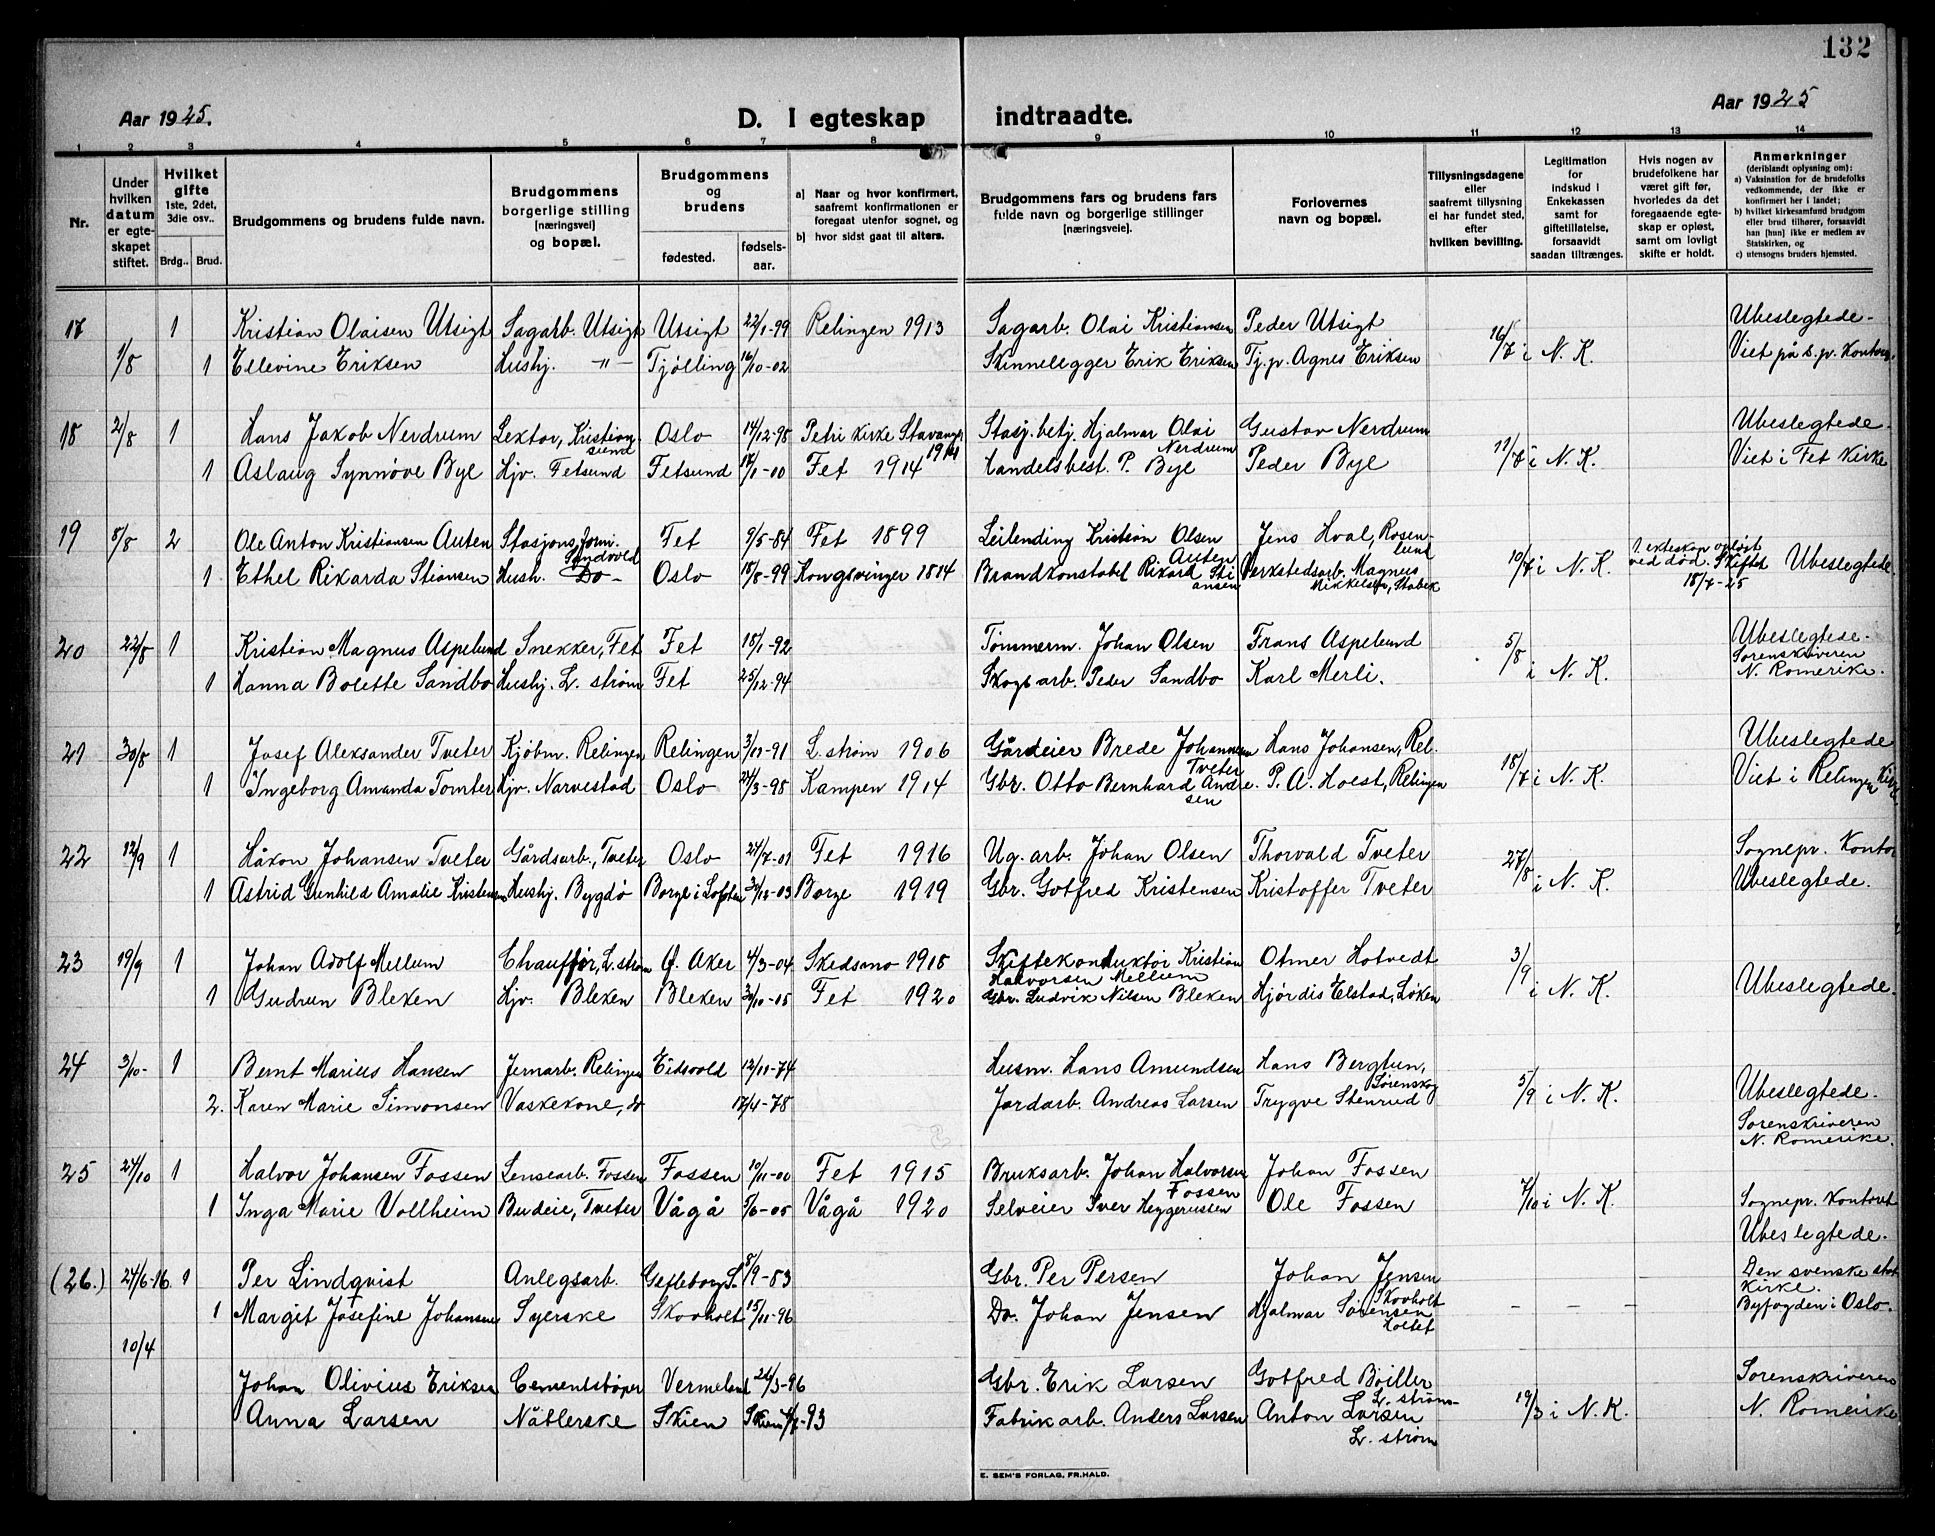 132
Aar 1925. D. I egteskap indtraadte. Aar 1925
1 2 3 4 5 6 7 8 9 10 11 12 13 14
Nr.
Under hvilken datum er egteskapet stiftet.
Hvilket gifte 1ste, 2det, 3die osv..
Brdg.. Brud.
Brudgommens og brudens fulde navn.
Brudgommens borgerlige stilling [næringsvei] og bopæl.
Brudgommens og brudens
fødested. fødselsaar.
a) Naar og hvor konfirmert, saafremt konfirmationen er foregaat utenfor sognet, og
b) hvor sidst gaat til alters.
Brudgommens fars og brudens fars fulde navn og borgerlige stillinger [næringsveie].
Forlovernes navn og bopæl.
Tillysningsdagene eller saafremt tillysning ei har fundet sted, efter hvilken bevilling.
Legitimation for indskud i Enkekassen samt for giftetillatelse, forsaavidt saadan tiltrænges.
Hvis nogen av brudefolkene har været gift før, hvorledes da det foregaaende egteskap er opløst, samt om lovligt skifte er holdt.
Anmerkninger (deriblandt oplysning om):
a) Vaksination for de brudefolks vedkommende, der ikke er konfirmert her i landet;
b) hvilket kirkesamfund brudgom eller brud tilhører, forsaavidt han [hun] ikke er medlem av Statskirken, og
c) utensogns bruders hjemsted.
17 1 Kristian Olaisen Utsigt Sagarb. Utsigt Utsigt 22/1-99 Relingen 1913 Sagarb. Olai Kristiansen Peder Utsigt 16/7 i N. K. Ubeslegtede-
1/8 1 Ellevine Eriksen Hushj. -"- Tjølling 16/10-02 Skinnelegger Erik Eriksen Tj.p. Agnes Eriksen Viet på s.pr. Kontor.
18 2/8 1 Hans Jakob Nerdrum Lektor, Kristiansund Oslo 14/12-98 Petri kirke Stavanger 1914 Stasj. betj. Hjalmar Olai Nerdrum Gustav Nerdrum 11/7 i N. K. Ubeslegtede.
1 Aslaug Synnøve Bye Hjv. Fetsund Fetsund 17/1-00 Fet 1914 Handelsbest. P. Bye Peder Bye Viet i Fet Kirke
19 5/8 2 Ole Anton Kristiansen Auten Stasjons form. Sandvold Fet 9/5-84 Fet 1899 Leilending Kristian Olsen Auten Jens Hval, Rosenlund 10/7 i N. K. 1. ekteskap opløst ved død. Skiftet 18/7-25 Ubeslegtede.
1 Ethel Rikarda Stiansen Hush. Do- Oslo 18/8-99 Kongsvinger 1814 Brandkonstabel Rikard Stiansen Verkstedsarb. Magnus Mikkelsen, Stabek
20 22/8 1 Kristian Magnus Aspelund Snekker, Fet Fet 18/1-92 Tømmerm. Johan Olsen Frans Aspelund 5/8 i N. K. Ubeslegtede.
1 Hanna Bolette Sandbo Hushj. L. strøm Fet 25/12-94 Skogsarb. Peder Sandbo Karl Merli. Sorenskriveren N. Romerike.
21 30/8 1 Josef Aleksander Tveter Kjøbm. Relingen Relingen 3/11-91 L. strøm 1906 Gårdeier Brede Johannesen Tveter Hans Johansen, Rel. 18/7 i N. K. Ubeslegtede
1 Ingeborg Amanda Tomter Hjv. Narvestad Oslo 24/3-98 Kampen 1914 Gbr. Otto Bernhard Andresen P. A. Holst, Relingen Viet i Relingen Kirke
22 12/9 1 Håkon Johansen Tveter Gårdsarb., Tveter Oslo 24/7-01 Fet 1916 Ug. arb. Johan Olsen Thorvald Tveter 27/8 i N. K. Sognepr. Kontor
1 Astrid Gunhild Amalie Kristensen Hushj. Bygdø Borge i Lofoten 30/12-03 Borge 1919 Gbr. Gotfred Kristensen Kristoffer Tveter Ubeslegtede.
23 19/9 1 Johan Adolf Mellum Chauffør, L. strøm Ø. Aker 4/3-04 Skedsmo 1918 Skiftekonduktør Kristian Halvorsen Mellum Otmer Hotvedt 3/9 i N. K. Ubeslegtede.
1 Gudrun Bleken Hjv. Bleken Bleken 30/10-05 Fet 1920 Gbr. Ludvik Nilsen Bleken Hjørdis Elstad, Løken
24 3/10- 1 Bernt Marius Hansen Jernarb. Relingen Eidsvold 12/11-74 Husm. Hans Amundsen Hans Bergtun, Sørenskog 5/9 i N. K. Ubeslegtede.
2. Karen Marie Simonsen Vaskekone, do 17/4-78 Jordarb. Andreas Larsen Trygve Stenrud Sorenskriveren N. Romerike.
25 24/10 1 Halvor Johansen Fossen Lensearb. Fossen Fossen 10/11-00 Fet 1915 Bruksarb. Johan Halvorsen Fossen Johan Fossen 7/10 i N. K.
1 Inga Marie Vollheim Budeie, Tveter Vågå 5/6-05 Vågå 1920 Selveier Iver Heggerusten Ole Fossen Sognepr. Kontoret Ubeslegtede.
(26.) 24/6-16 1 Per Lindqvist Anlegsarb. Gefleborgs L. 8/9-83 Gbr. Per Persen Johan Jensen Skovholt Den svenske stats kirke.
1 Margit Josefine Johansen Syerske Skovholt 15/11-96 Do. Johan Jensen Hjalmar Sørensen Holtet - - - Byfogden i Oslo.
10/4
Johan Olivius Eriksen Cementstøper Vermeland 26/3-96 Gbr. Erik Larsen Gotfred Bøiller L. strøm 19/3 i N. K. Sorenskriveren
Anna Larsen Nåtlerske Skien 4/7-93 Fabrikarb. Anders Larsen Anton Larsen L. strøm N. Romerike
E. SEM'S FORLAG, FR.HALD.